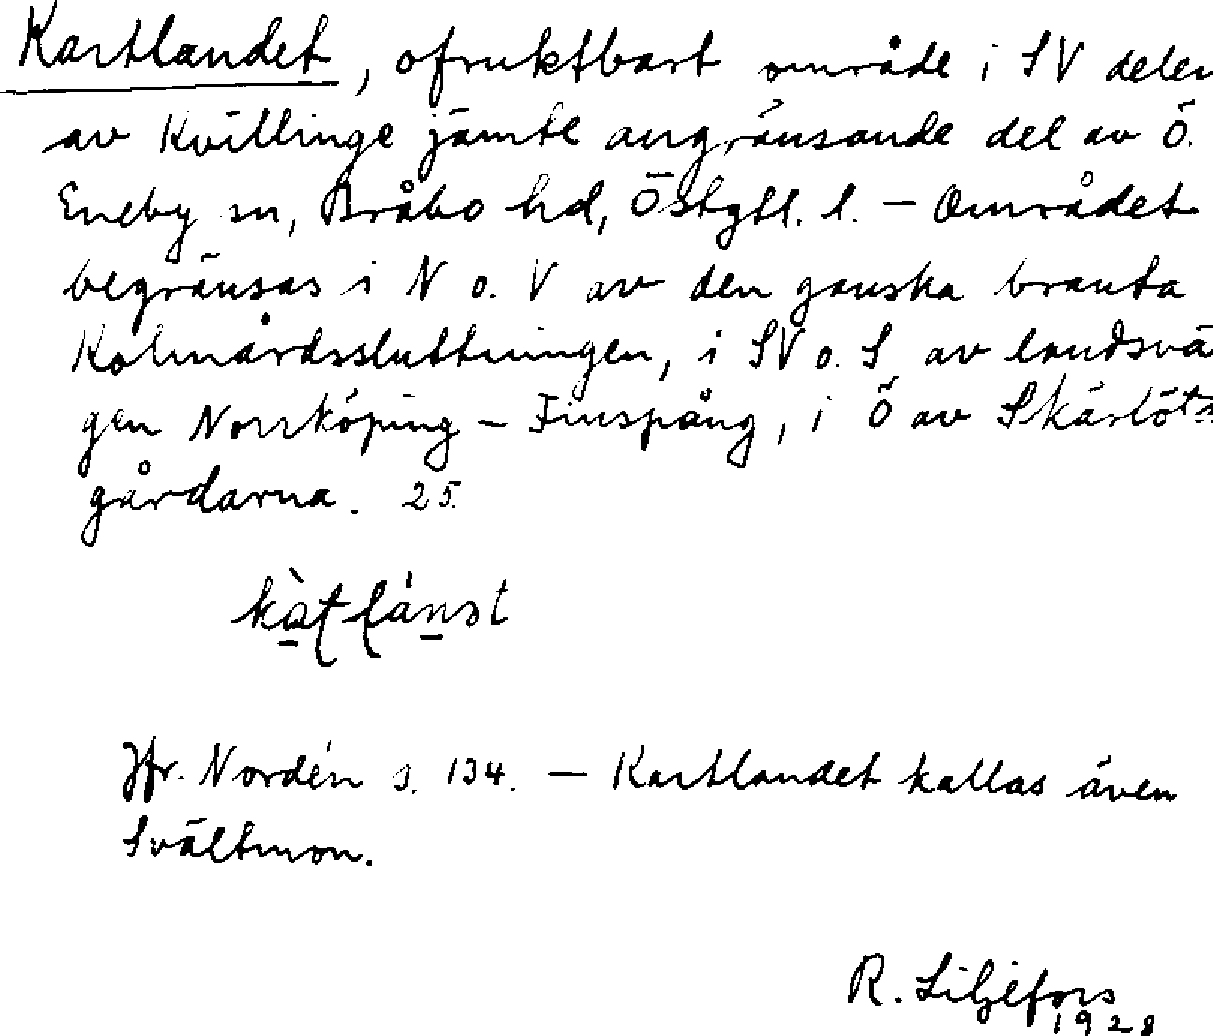 Kartlandet, ofruktbart område i SV delen
av Kvillinge jämte angränsande del av Ö.
Eneby sn, Bråbo hd, Östgtl. l. – Området
begränsas i N o. V av den ganska branta
Kolmårdssluttningen, i SV o. S av landsvä
gen Norrköping – Finspång, i Ö av Skärlöts
gårdarna. 25.
Jfr. Nordén s. 134. – Kartlandet kallas även
Svältmon.
R. Liljefors
1928